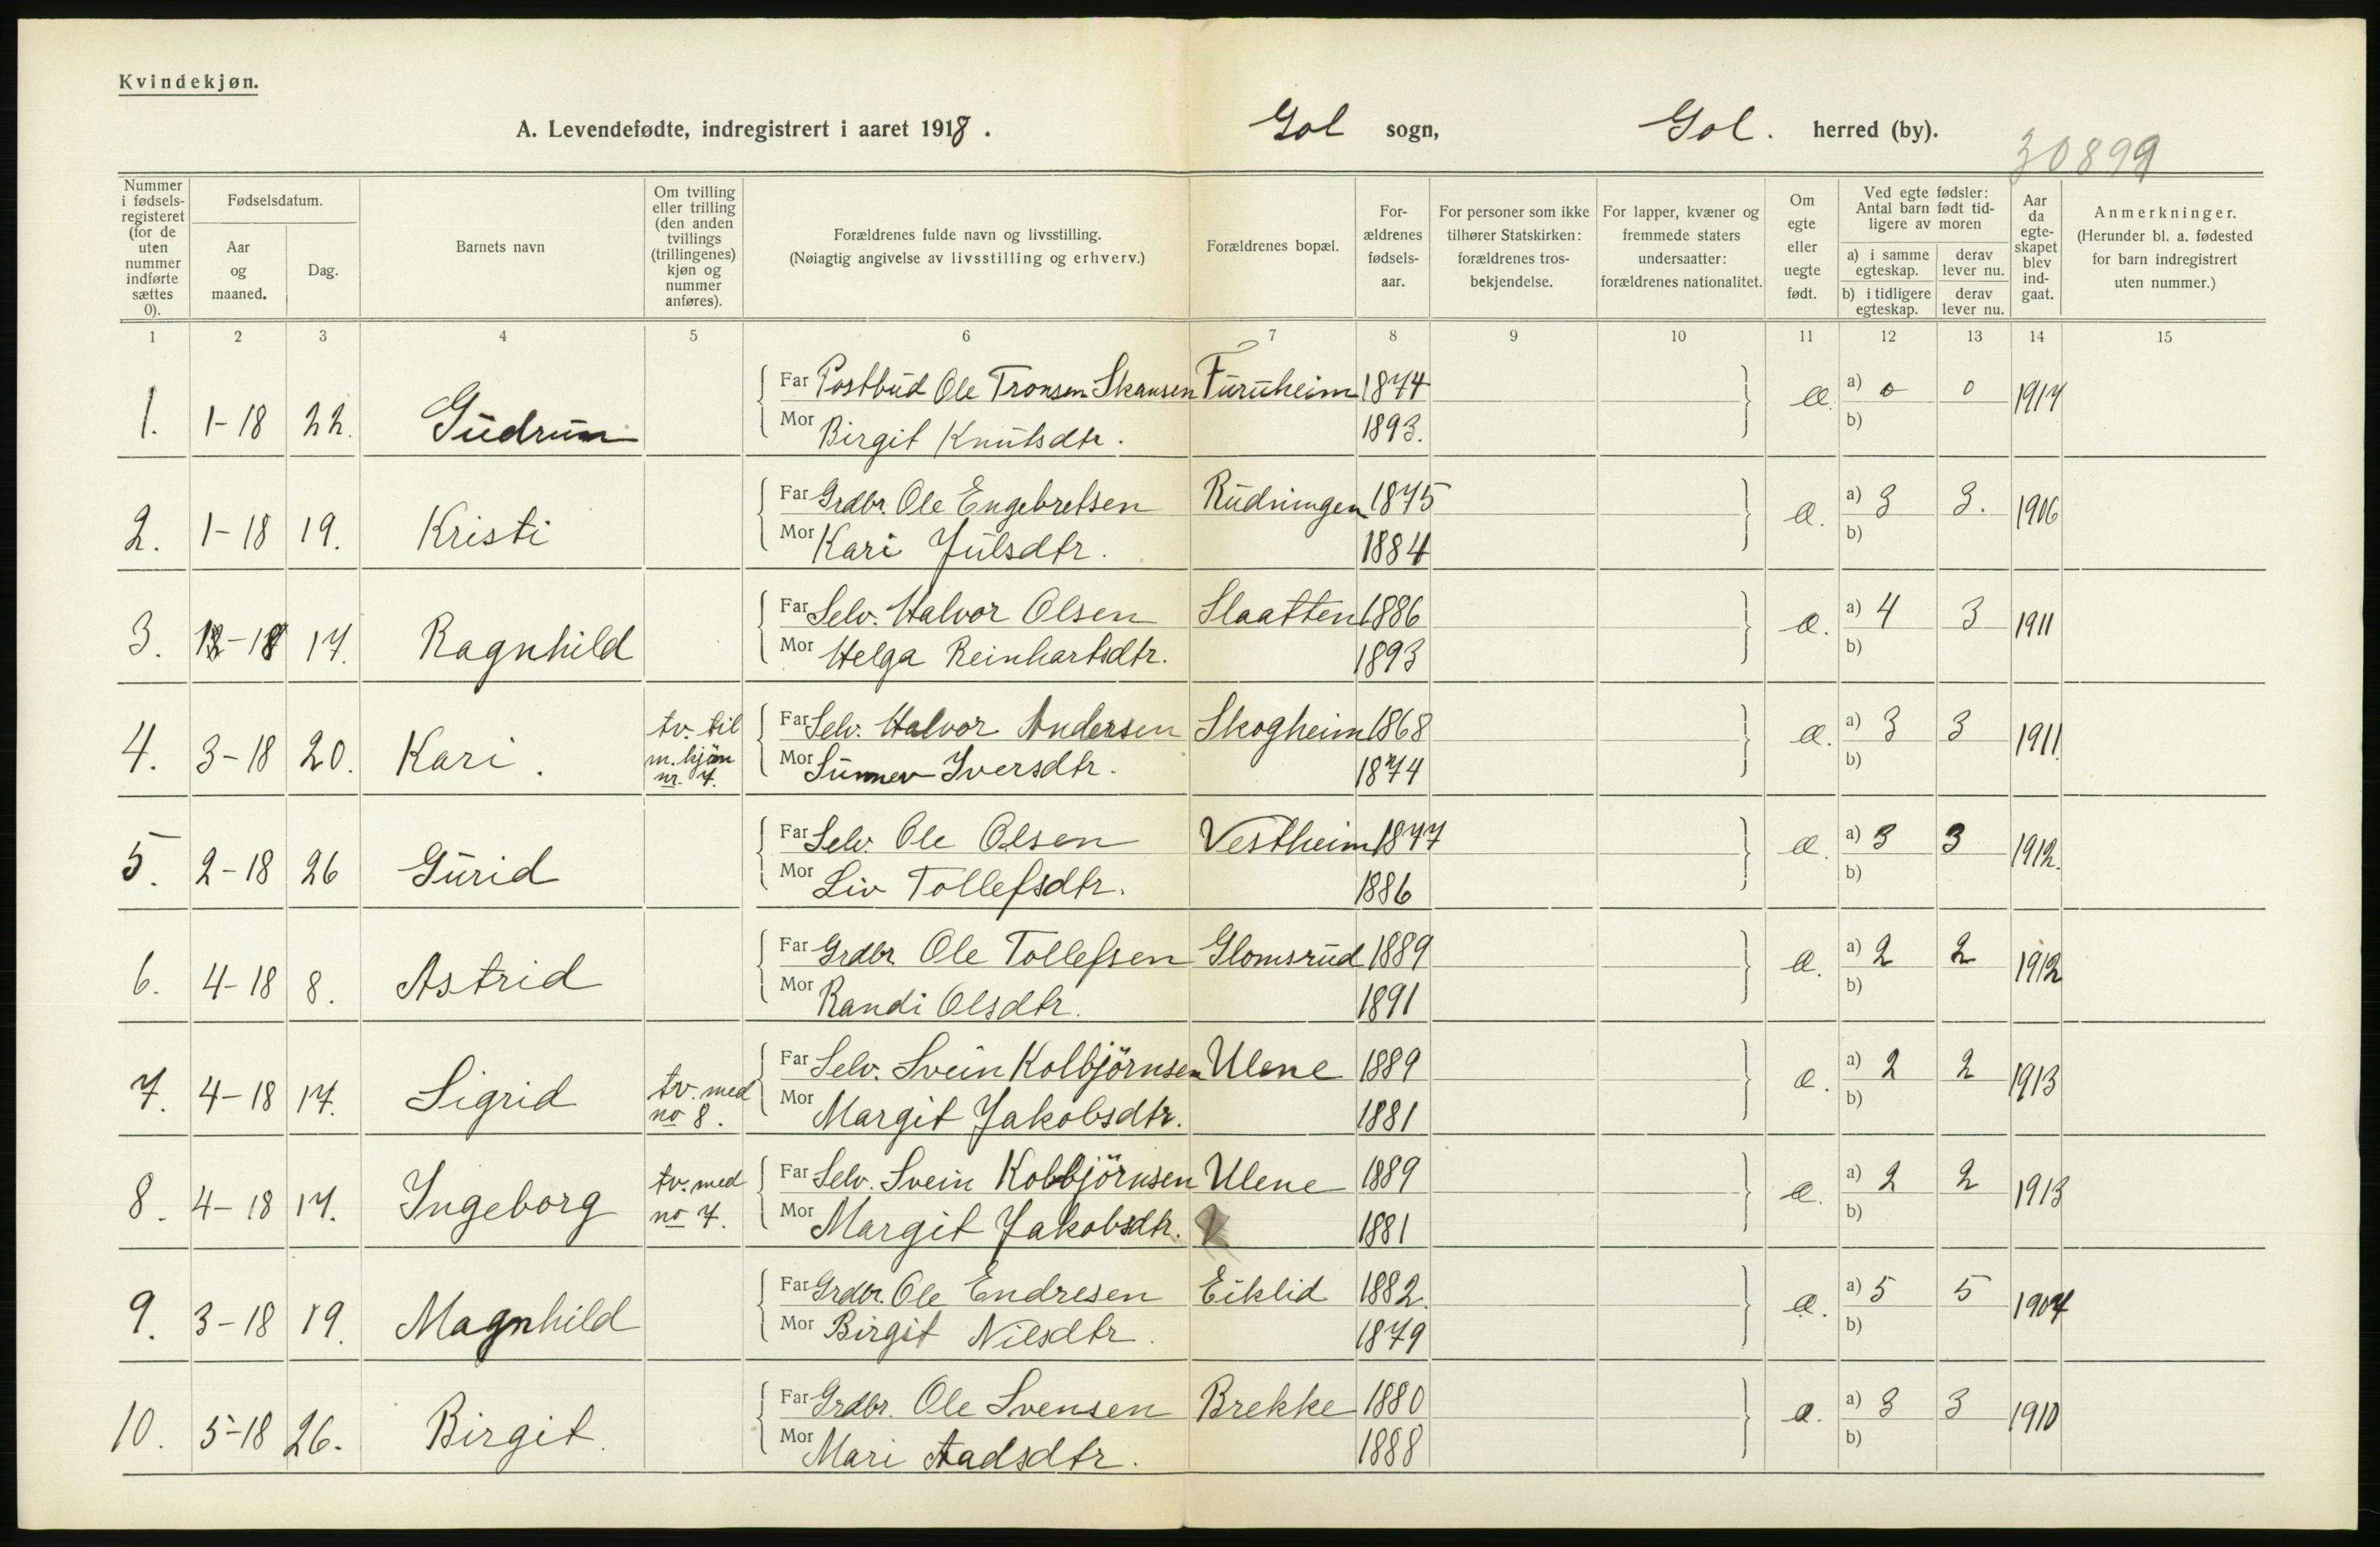 Kvindekjøn.
A. Levendefødte, indregistrert i aaret 1918. Gol sogn, Gol. herred (by).
30899
Nummer i fødselsregisteret (for de uten nummer indførte sættes 0).
Fødselsdatum.
Aar og maaned.
Dag.
Barnets navn
Om tvilling eller trilling (den anden tvillings (trillingenes) kjøn og nummer anføres).
Forældrenes fulde navn og livsstilling.
(Nøiagtig angivelse av livsstilling og erhverv.)
Forældrenes bopæl.
Forældrenes fødselsaar.
For personer som ikke tilhører Statskirken: forældrenes trosbekjendelse.
For lapper, kvæner og fremmede staters undersaatter: forældrenes nationalitet.
Om egte eller uegte født.
Ved egte fødsler: Antal barn født tidligere av moren
a) i samme egteskap. derav lever nu.
b) i tidligere egteskap. derav lever nu.
Aar da egteskapet blev indgaat.
Anmerkninger.
(Herunder bl. a. fødested for barn indregistrert uten nummer.)
1 2 3 4 5 6 7 8 9 10 11 12 13 14 15
1. 1-18 22. Gudrun Far Postbud Ole Tronsen Skansen Furuheim 1874 æ. a) 0 0 1917
Mor Birgit Knutsdtr. 1893. b)
2. 1-18 19. Kristi Far Grdbr. Ole Engebretsen Rudningen 1875 æ. a) 3 3. 1906
Mor Kari Julsdtr. 1884 b)
3. 17. Ragnhild Far Selv. Halvor Olsen Slaatten 1886 æ. a) 4 3 1911
Mor Helga Reinhartsdtr. 1893 b)
4. 3-18 20. Kari. tv. til m. kjøn nr. 7. Far Selv. Halvor Andersen Skogheim 1868 æ. a) 3 3 1911.
Mor Sunnev Iversdtr. 1874 b)
5. 2-18 26 Gurid Far Selv. Ole Olsen Vestheim 1877 æ. a) 3 3 1912.
Mor Liv Tollefsdtr. 1886 b)
6. 4-18 8. Astrid Far Grdbr Ole Tollefsen Glomsrud 1889 æ. a) 2 2 1912
Mor Randi Olsdtr. 1891 b)
7. 4-18 17. Sigrid tv. med no 8. Far Selv. Svein Kolbjörnsen Ulene 1889 æ. a) 2 2 1913
Mor Margit Jakobsdtr. 1881 b)
8. 4-18 17. Ingeborg tv. med no 7. Far Selv. Svein Kolbjörnsen Ulene 1889 æ. a) 2 2 1913
Mor Margit Jakobsdtr. 1881 b)
9. 3-18 19. Magnhild Far Grdbr. Ole Endresen Eiklid 1882. æ. a) 5 5 1907
Mor Birgit Nilsdtr. 1879 b)
10. 5-18 26. Birgit. Far Grdbr. Ole Svensen Brekke 1880 æ. a) 3 3 1910
Mor Mari Aadsdtr. 1888 b)